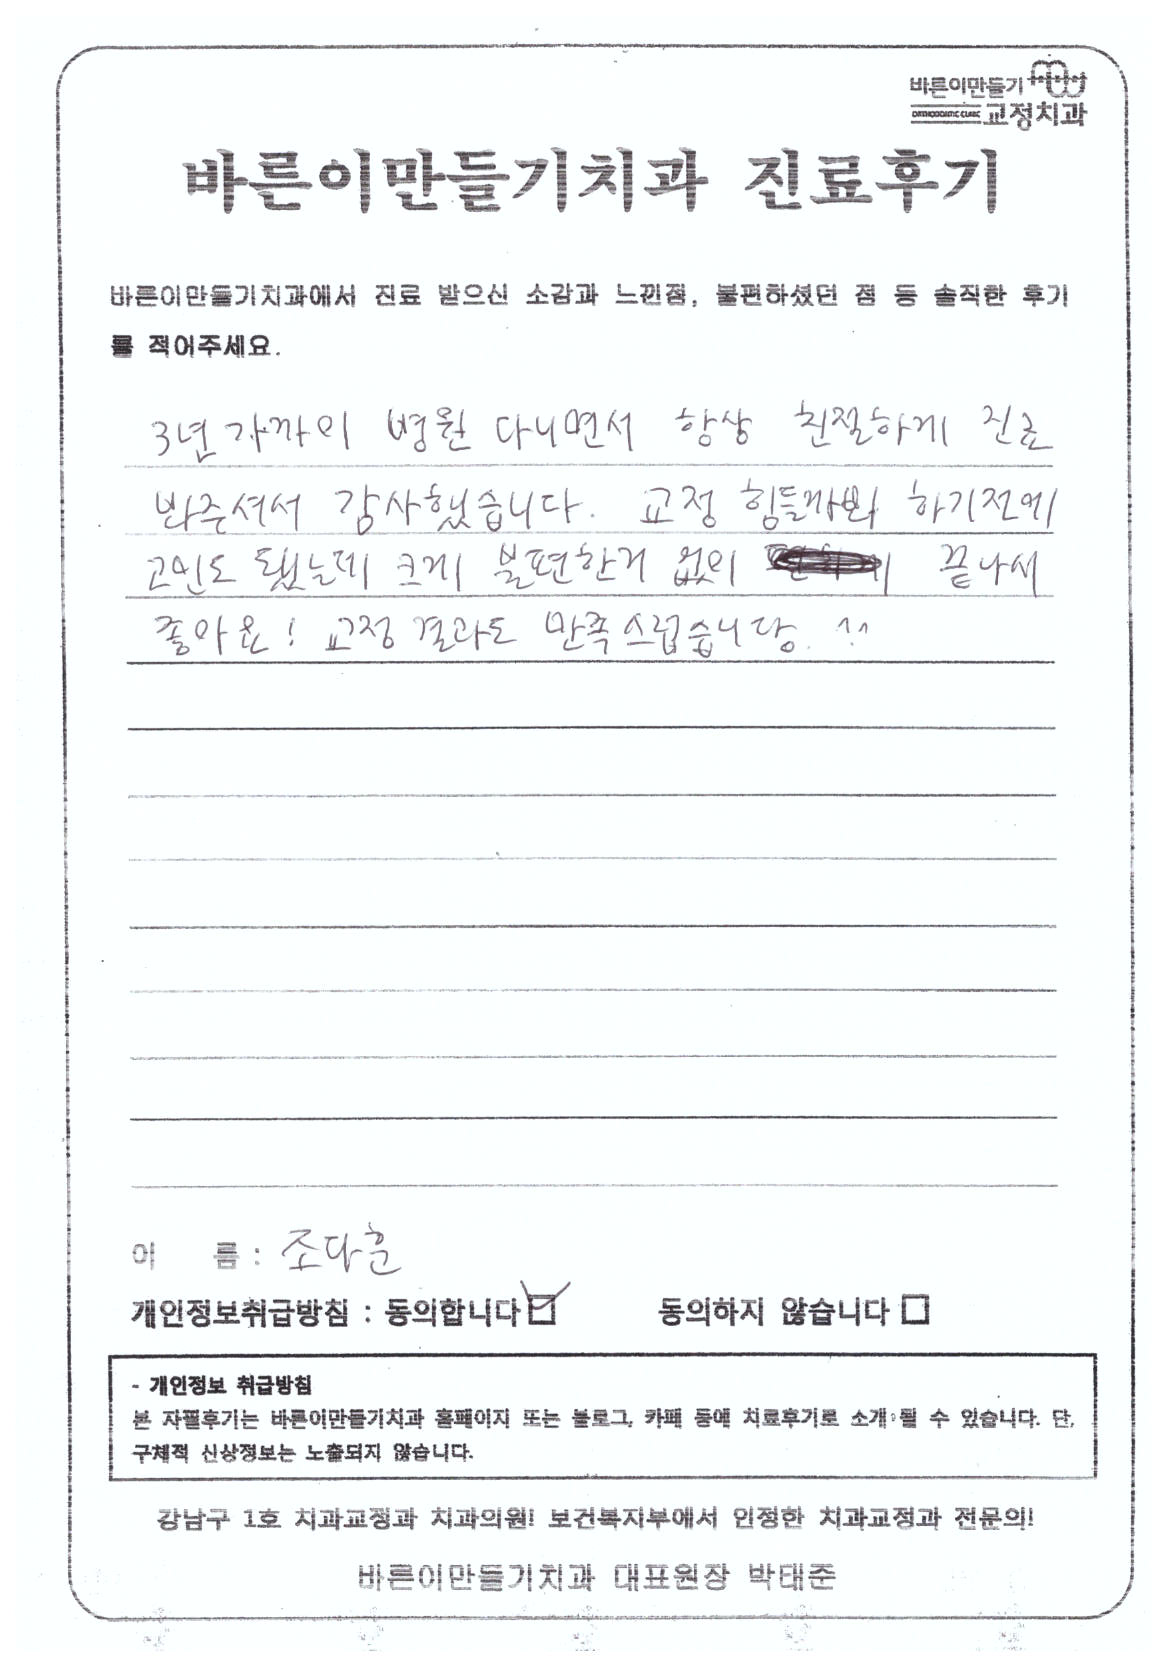 바른이만들기
ORTHODONTIC CLINIC 교정치과
바른이만들기치과 진료후기
바른이만들기치과에서 진료 받으신 소감과 느낀점, 불편하셨던 점 등 솔직한 후기
를 적어주세요.
3년 가까이 병원 다니면서 항상 친절하게 진료
봐주셔서 감사했습니다. 교정 힘들까봐 하기전에
고민도 됐는데 크게 불편한거 없이 끝나서
좋아요! 교정 결과도 만족스럽습니당. ^^
이 름 : 조다훈
개인정보취급방침 : 동의합니다 동의하지 않습니다
- 개인정보 취급방침
본 자필후기는 바른이만들기치과 홈페이지 또는 블로그, 카페 등에 치료후기로 소개 될 수 있습니다. 단,
구체적 신상정보는 노출되지 않습니다.
강남구 1호 치과교정과 치과의원! 보건복지부에서 인정한 치과교정과 전문의!
바른이만들기치과 대표원장 박태준